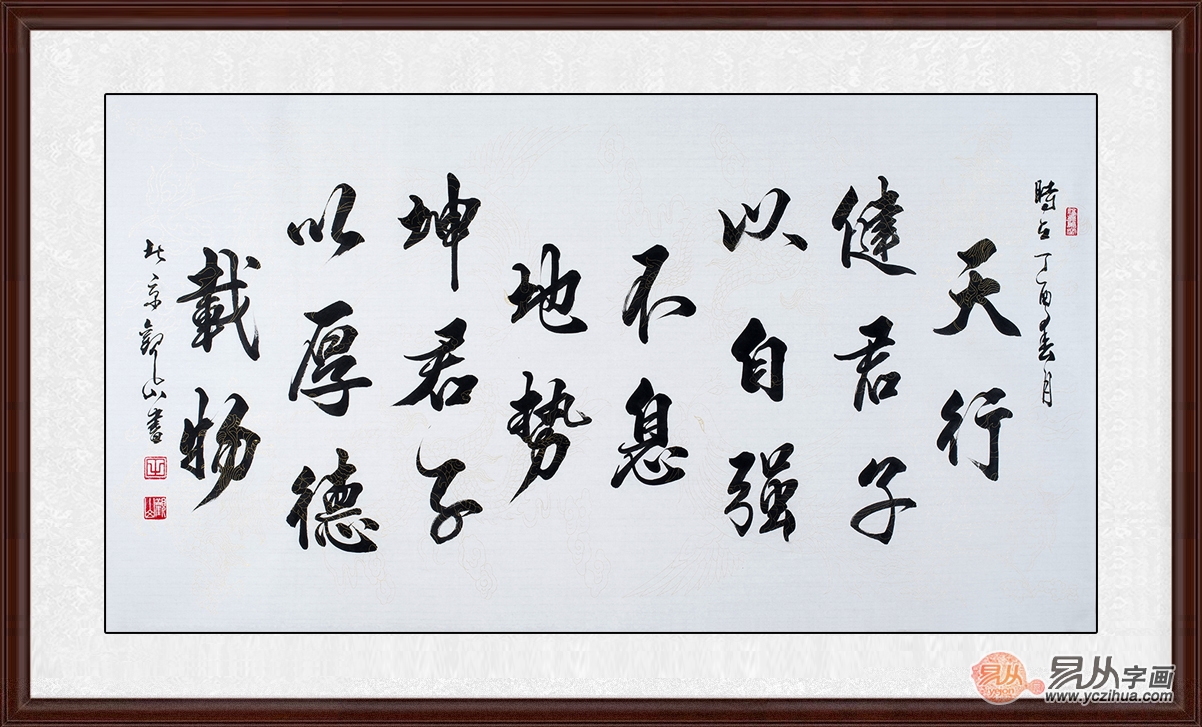 時在丁酉年春月
天行
健君子
以自强
不息
地势
坤君子
以厚德
載物
北京觀山書
易从字画
www.yczihua.com